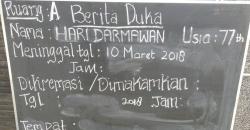 Ruang: A Berita Duka
Nama: HARI DARMAWAN Usia: 77th
Meninggal tgl: 10 Maret 2018
Jam:
Dikremasi/Dimakamkan:
Tgl: 2018 Jam:
Tempat: